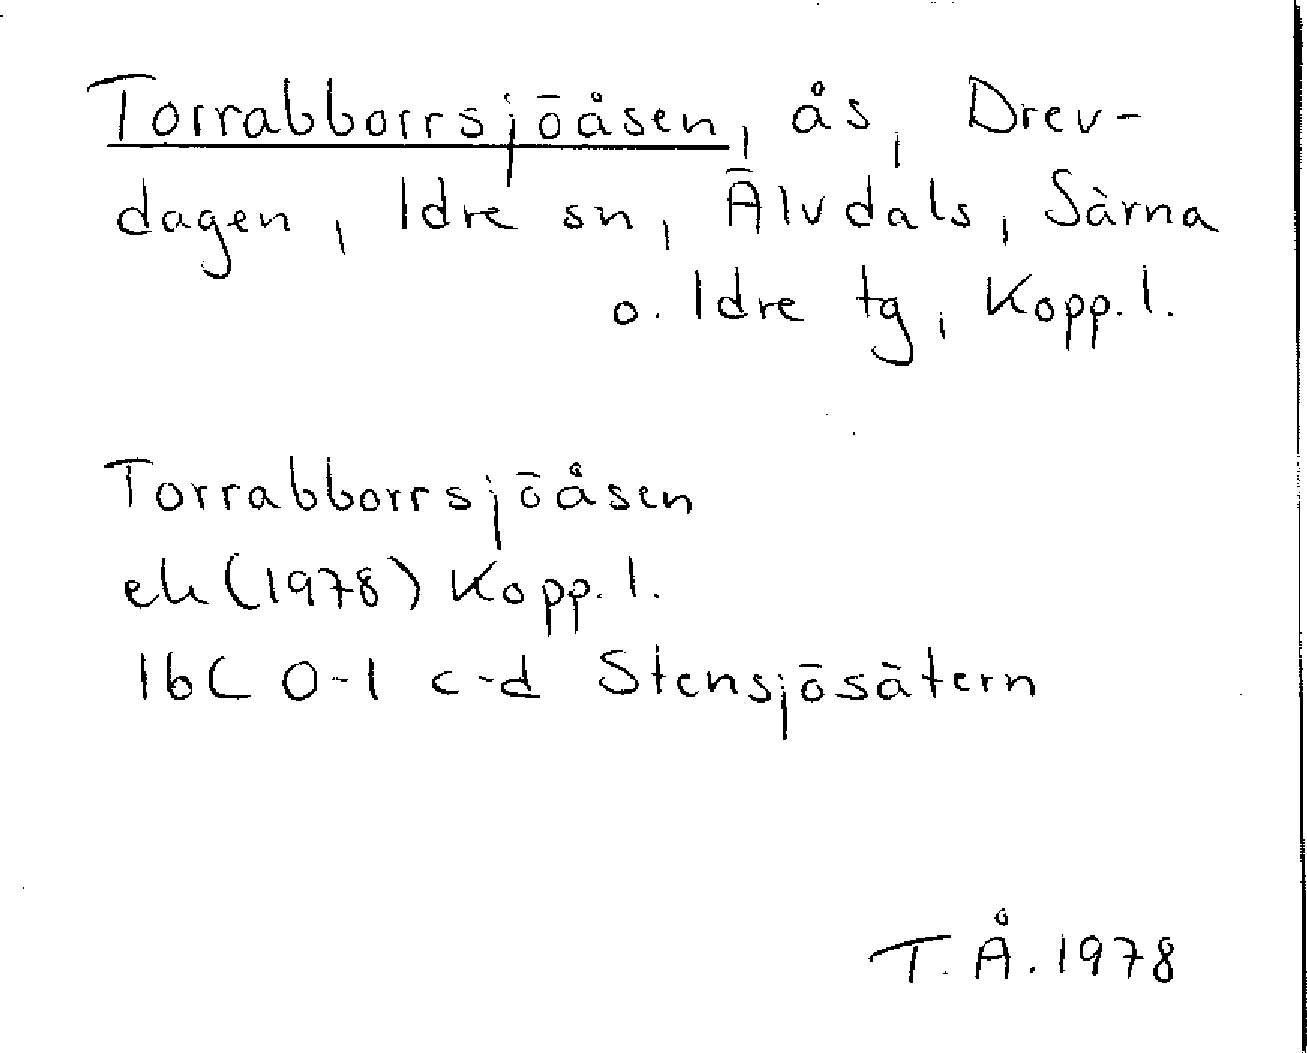 Torrabborrsjöåsen, ås, Drev-
dagen, Idre sn, Älvdals, Särna
o. Idre tg, Kopp. l.
Torrabborrsjöåsen
ek (1978) Kopp. l.
16C 0-1 c-d Stensjösätern
T.Å. 1978